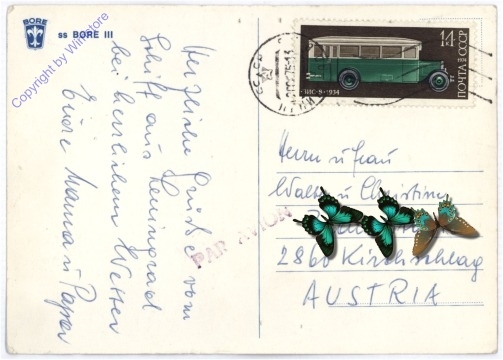 BORE
ss BORE III
Copyright by Winstore
Herzliche Grüße vom
Schiff aus Leningrad
bei herrlichem Wetter
Eure Mama u Papa
14 К
ПОЧТА СССР
1974
ЗИС-8•1934
PAR AVION
Herrn u Frau
Walter u Christine
2860 Kirchschlag
AUSTRIA